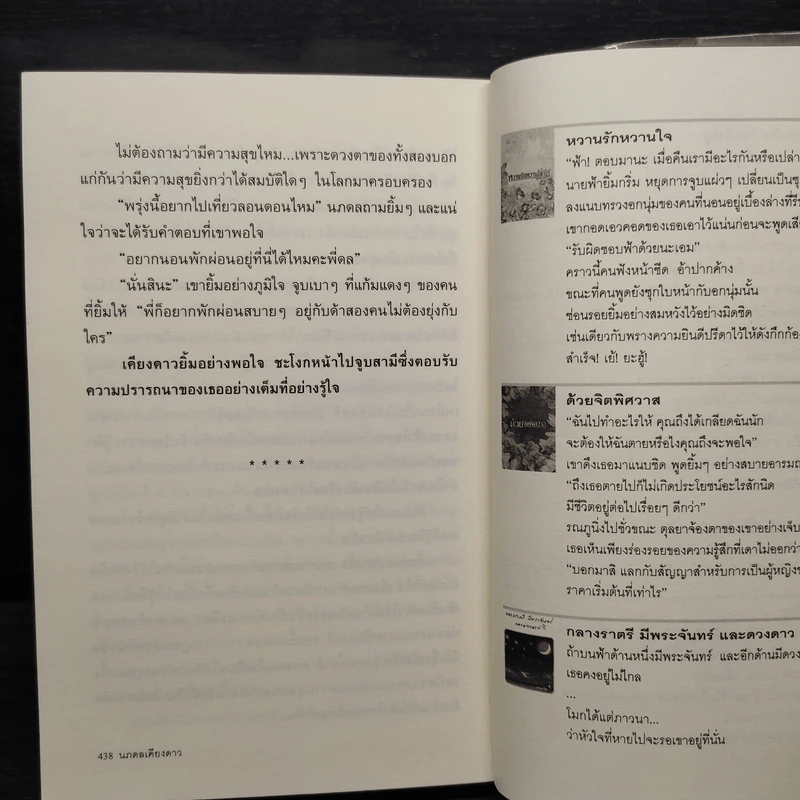 ไม่ต้องถามว่ามีความสุขไหม...เพราะดวงตาของทั้งสองบอก
แก่กันว่ามีความสุขยิ่งกว่าได้สมบัติใดๆ ในโลกมาครอบครอง
“พรุ่งนี้อยากไปเที่ยวลอนดอนไหม” นภดลถามยิ้มๆ และแน่
ใจว่าจะได้รับคำตอบที่เขาพอใจ
“อยากนอนพักผ่อนอยู่ที่นี่ได้ไหมคะพี่ดล”
“นั่นสินะ” เขายิ้มอย่างภูมิใจ จูบเบาๆ ที่แก้มแดงๆ ของคน
ที่ยิ้มให้ “พี่ก็อยากพักผ่อนสบายๆ อยู่กับด้าสองคนไม่ต้องยุ่งกับ
ใคร”
เคียงดาวยิ้มอย่างพอใจ ชะโงกหน้าไปจูบสามีซึ่งตอบรับ
ความปรารถนาของเธออย่างเต็มที่อย่างรู้ใจ
* * * * *
438 นภดลเคียงดาว
หวานรักหวานใจ
“ฟ้า! ตอบมานะ เมื่อคืนเรามีอะไรกันหรือเปล่า
นายฟ้ายิ้มกริ่ม หยุดการจูบแผ่วๆ เปลี่ยนเป็นซุ
ลงแนบทรวงอกนุ่มของคนที่นอนอยู่เบื้องล่างที่รีบ
เขากอดเอวคอดของเธอเอาไว้แน่นก่อนจะพูดเสีย
“รับผิดชอบฟ้าด้วยนะเอม”
คราวนี้คนฟังหน้าซีด อ้าปากค้าง
ขณะที่คนพูดยังซุกใบหน้ากับอกนุ่มนั้น
ซ่อนรอยยิ้มอย่างสมหวังไว้อย่างมิดชิด
เช่นเดียวกับพรางความยินดีปรีดาไว้ให้ดังกึกก้อง
สำเร็จ! เย้! ยะฮู้!
ด้วยจิตพิศวาส
“ฉันไปทำอะไรให้ คุณถึงได้เกลียดฉันนัก
จะต้องให้ฉันตายหรือไงคุณถึงจะพอใจ”
เขาดึงเธอมาแนบชิด พูดยิ้มๆ อย่างสบายอารมณ์
“ถึงเธอตายไปก็ไม่เกิดประโยชน์อะไรสักนิด
มีชีวิตอยู่ต่อไปเรื่อยๆ ดีกว่า”
รณภูนิ่งไปชั่วขณะ ตุลยาจ้องตาของเขาอย่างเจ็บ
เธอเห็นเพียงร่องรอยของความรู้สึกที่เดาไม่ออกว่า
“บอกมาสิ แลกกับสัญญาสำหรับการเป็นผู้หญิงข
ราคาเริ่มต้นที่เท่าไร”
กลางราตรี มีพระจันทร์ และดวงดาว
ถ้าบนฟ้าด้านหนึ่งมีพระจันทร์ และอีกด้านมีดวง
เธอคงอยู่ไม่ไกล
...
โมกได้แต่ภาวนา...
ว่าหัวใจที่หายไปจะรอเขาอยู่ที่นั่น